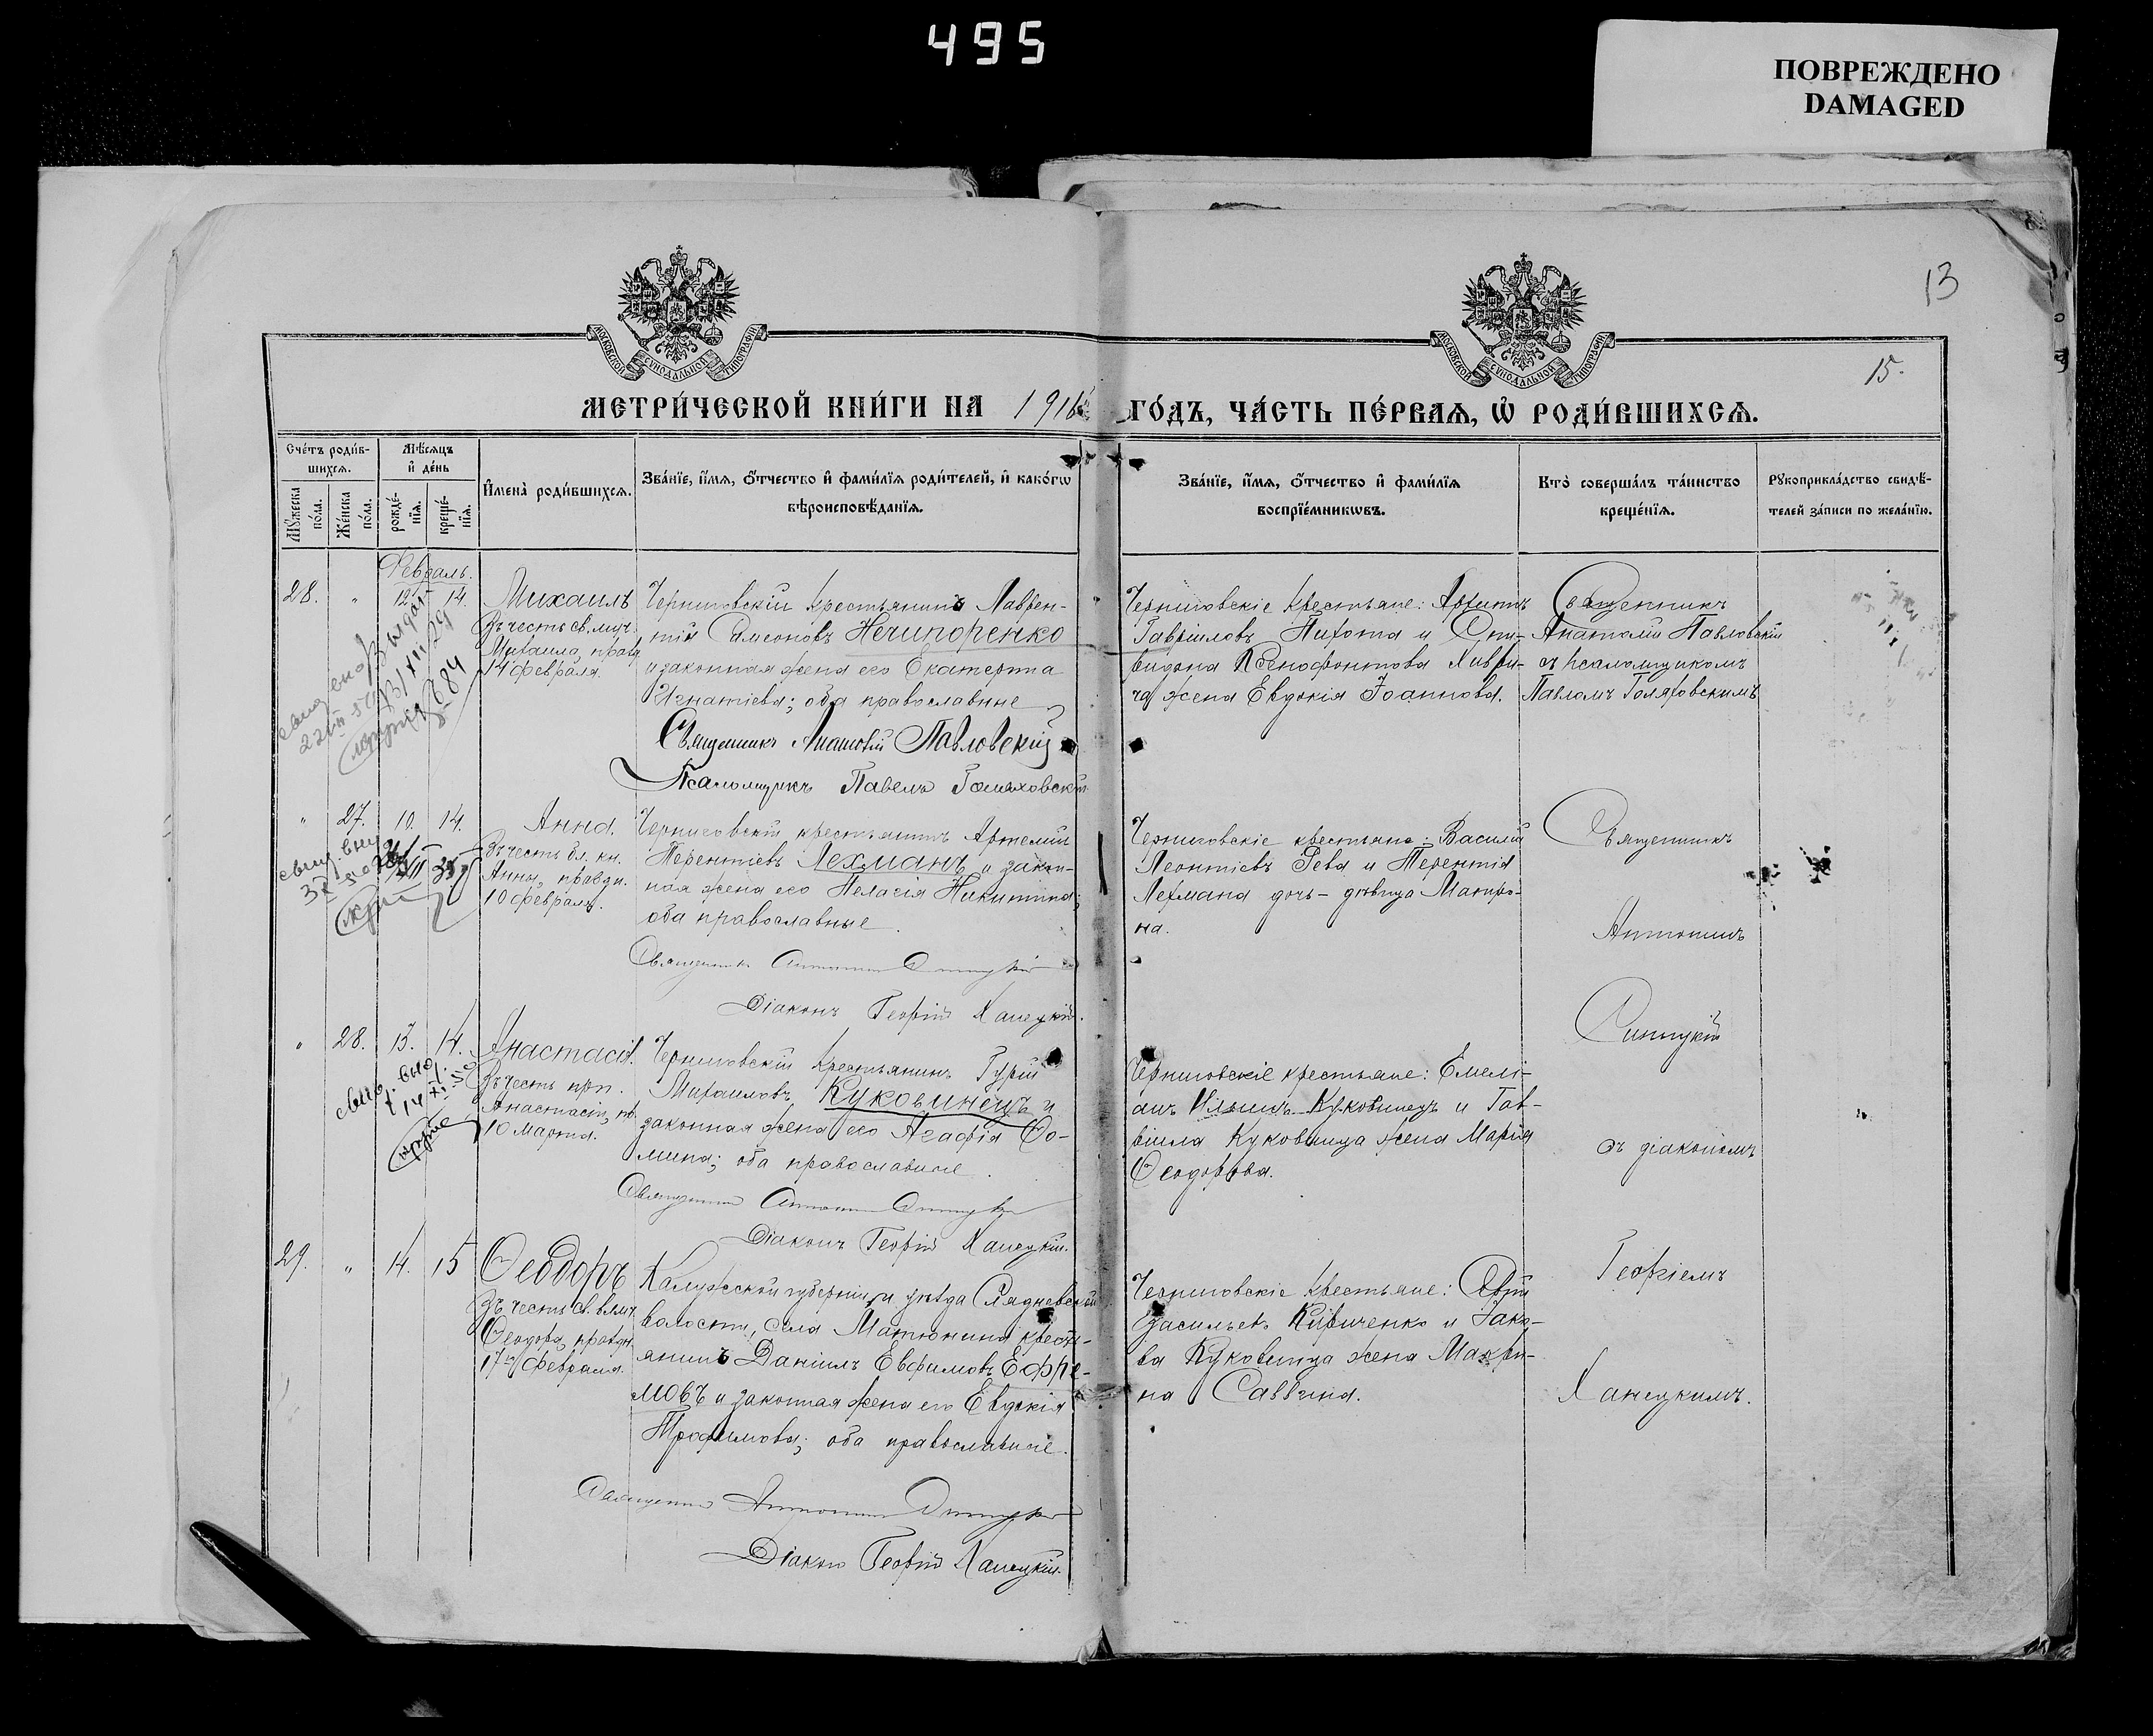 495
ПОВРЕЖДЕНО
DAMAGED
13
15.
МОСКОВСКОЙ СѴНОДАЛЬНОЙ ТИПОГРАФІИ
МОСКОВСКОЙ СѴНОДАЛЬНОЙ ТИПОГРАФІИ
МЕТРИ́ЧЕСКОЙ КНИ́ГИ НА 1916 ГО́ДЪ, ЧА́СТЬ ПЕ́РВАѦ, Ѡ҆ РОДИ́ВШИХСѦ.
Сче́тъ роди́в-
шихсѧ.
Мꙋжеска по́ла.
Же́нска по́ла.
Мѣ́сѧцъ и҆ де́нь
рожде́-
нїѧ.
креще́-
нїѧ.
И҆мена̀ роди́вшихсѧ.
Зва́нїе, и҆́мѧ, ѻ҆́тчество и҆ фами́лїѧ роди́телей, и҆ како́гѡ
вѣроисповѣ́данїѧ.
Зва́нїе, и҆́мѧ, ѻ҆́тчество и҆ фами́лїѧ
воспрїе́мникѡвъ.
Кто̀ соверша́лъ та́инство
креще́нїѧ.
Рꙋкоприкла́дство свидѣ́-
телей за́писи по жела́нїю.
Февраль.
28. " 12. 14.
Михаилъ
Въ честь св. муч.
Михаила, празд.
14 февраля.
Черниговскій крестьянинъ Лаврен-
тій Симеоновъ Нечипоренко
и законная жена его Екатерина
Игнатіева; оба православные
Священникъ Анатолій Павловскій
Псаломщикъ Павелъ Голяховскій
Черниговскіе крестьяне: Архипъ
Гавріиловъ Пихота и Спи-
ридона Ксенофонтова
жена Евдокія Іоаннова.
Священникъ
Анатолій Павловскій
съ псаломщикомъ
Павломъ Голяховскимъ
" 27. 10. 14.
Анна.
Въ честь бл. кн.
Анны, праздн.
10 февраля.
Черниговскій крестьянинъ Артемій
Терентіевъ Лехманъ и закон-
ная жена его Пелагія Никитина;
оба православные.
Священникъ Антонинъ
Діаконъ Георгій Ханецкій.
Черниговскіе крестьяне: Василій
Леонтіевъ Рева и Терентія
Лехмана дочь – дѣвица Матро-
на.
Священникъ
Антонинъ
" 28. 13. 14.
Анастасія.
Въ честь прп.
Анастасіи, пр.
10 марта.
Черниговскій крестьянинъ Гурій
Михаиловъ Куковинецъ и
законная жена его Агафія Ѳо-
мина; оба православные.
Священникъ Антонинъ
Діаконъ Георгій Ханецкій.
Черниговскіе крестьяне: Емелі-
анъ Ильинъ Куковинецъ и Гав-
ріила Куковинца жена Марія
Ѳеодорова.
съ діакономъ
29. " 14. 15
Ѳеодоръ
Въ честь св. влмч.
Ѳеодора, праздн.
17го февраля.
Калужской губерніи и уѣзда
волости, села Матюнина кресть-
янинъ Даніилъ Евфимовъ Ефре-
мовъ и законная жена его Евдокія
Трофимова; оба православные.
Священникъ Антонинъ
Діаконъ Георгій Ханецкій.
Черниговскіе крестьяне:
Васильевъ Кириченко и Іако-
ва Куковинца жена Макри-
на Саввина.
Георгіемъ
Ханецкимъ.